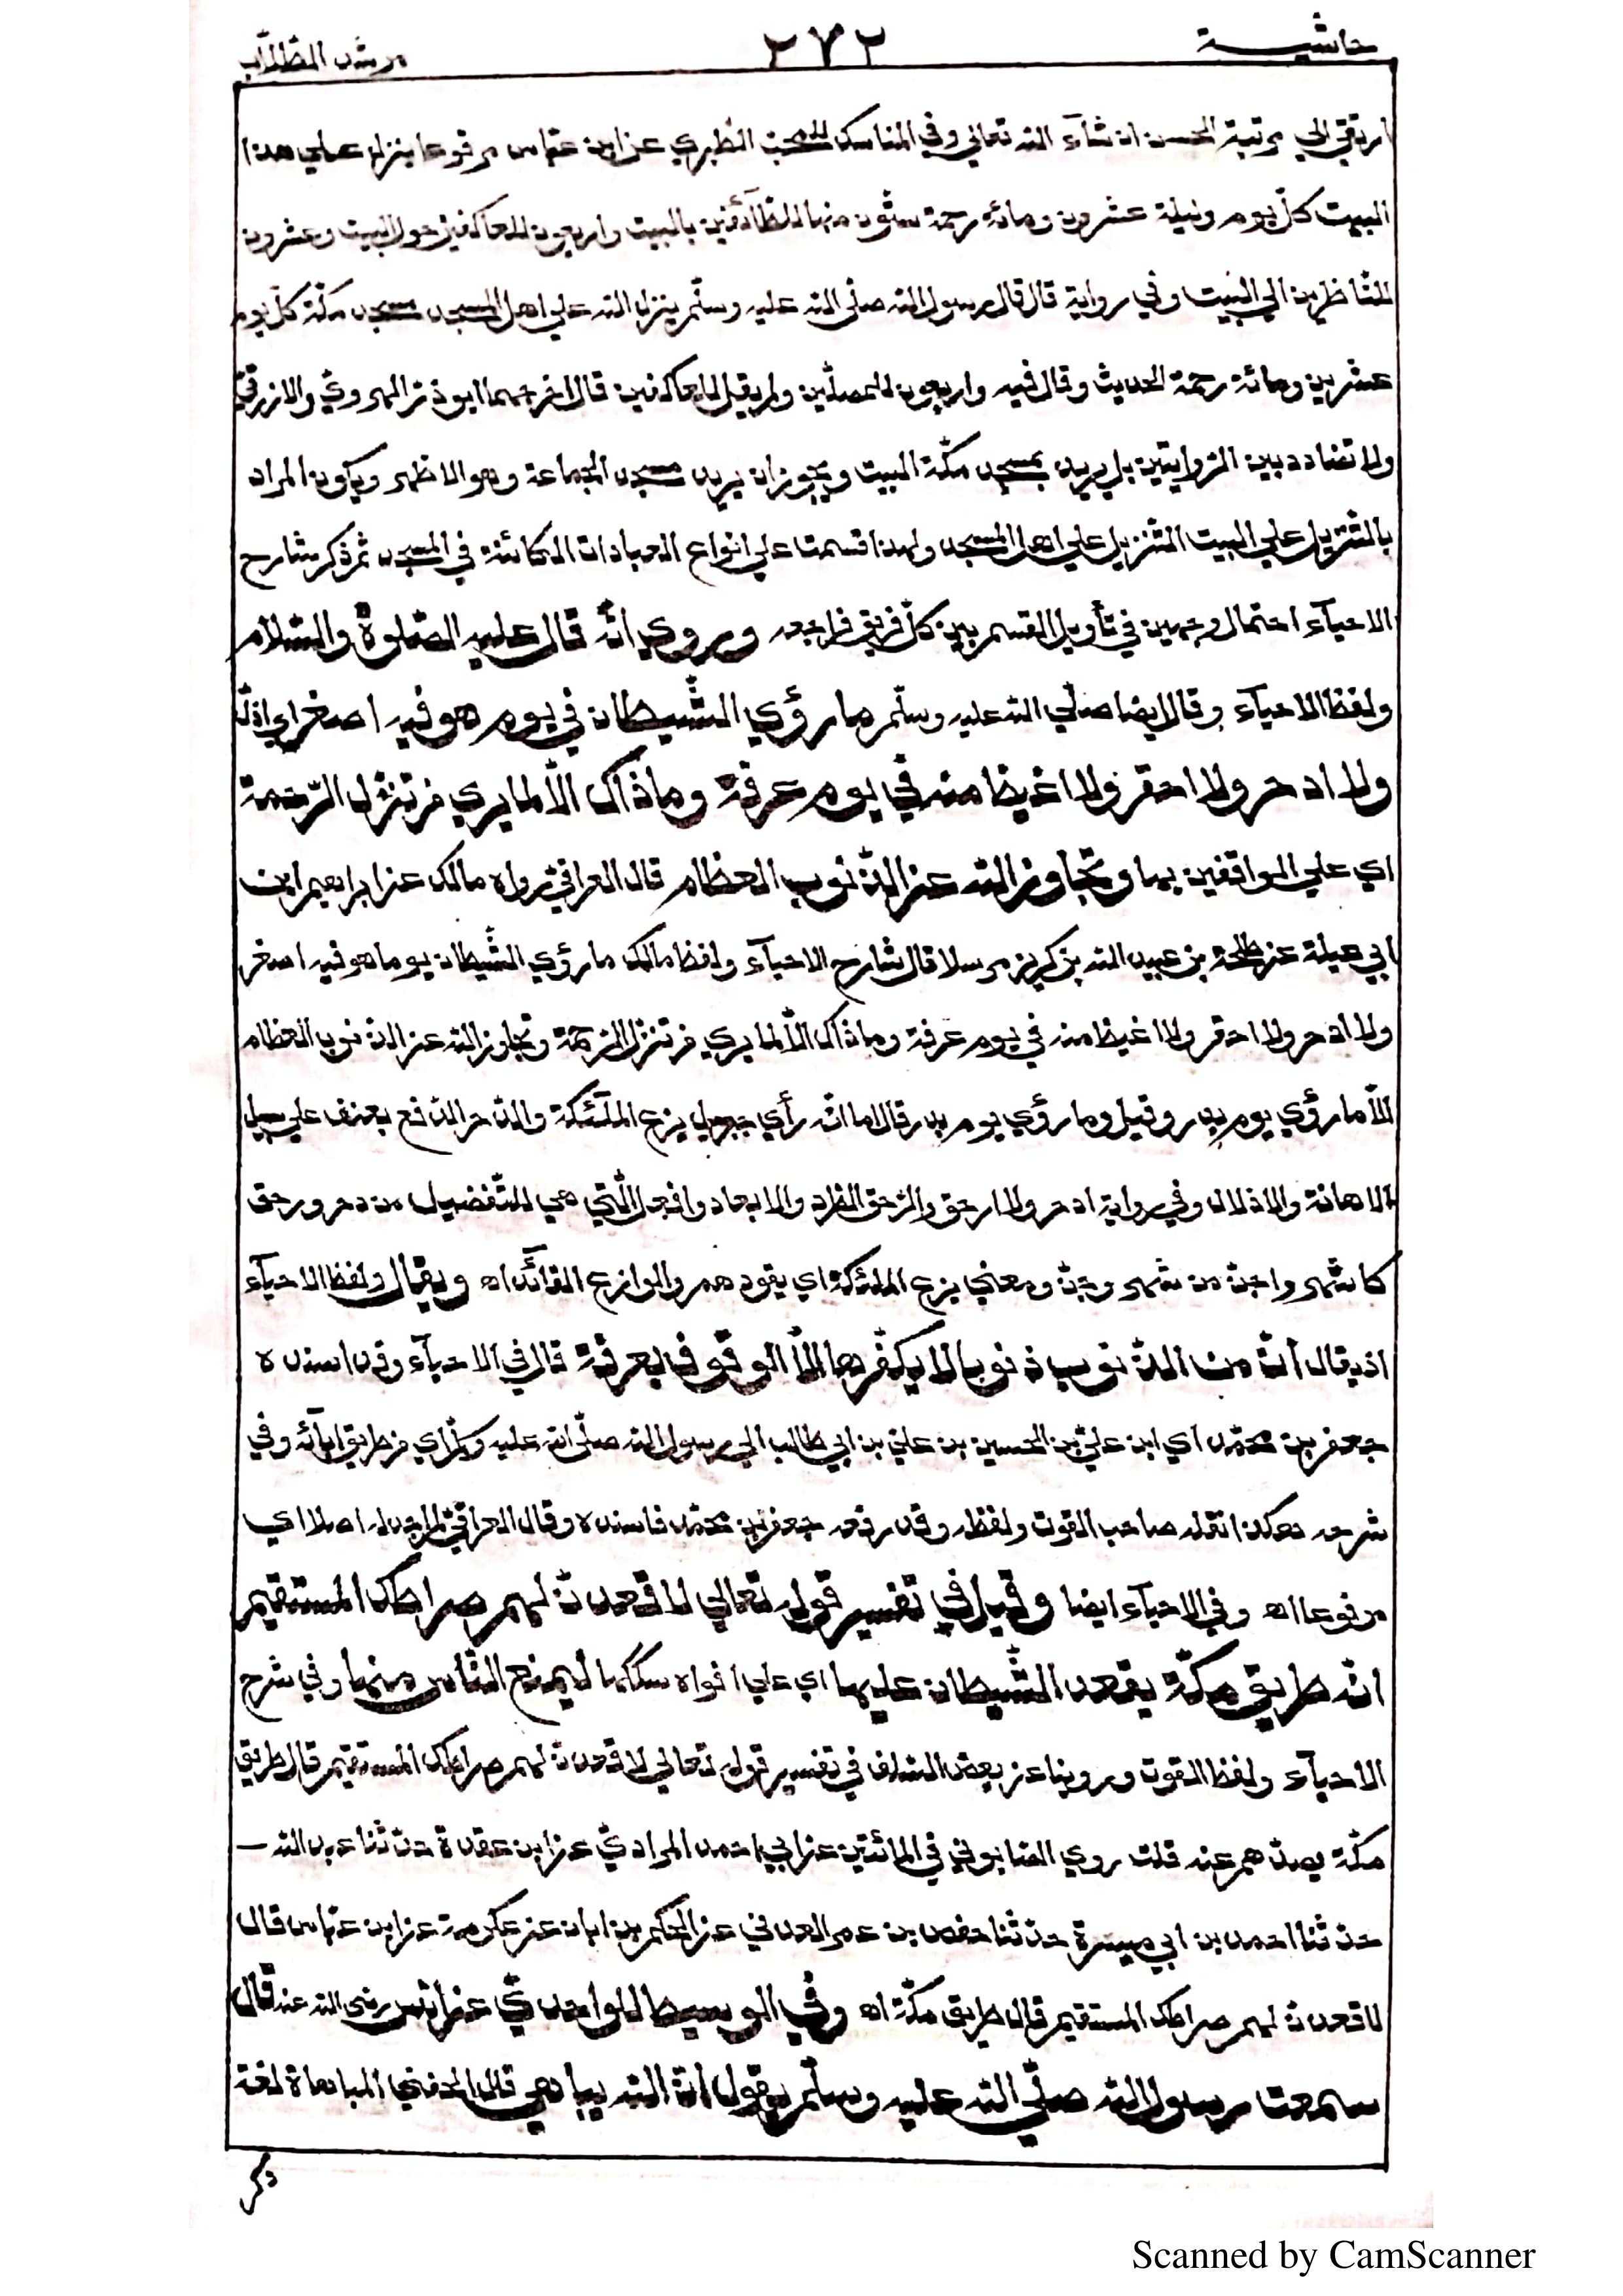 حاشيـــة ٢٧٢ مرشد الطلّاب
ارتقي الي مرتبة الحسن ان شآء الله تعالي وفي المناسك للمحبّ الطّبري عن ابن عبّاس مرفوعا ينزل علي هذا
البيت كلّ يوم وليلة عشرون ومائة رحمة ستّون منها للطّآئفين بالبيت واربعون للعاكفين حول البيت وعشرون
للنّاظرين الي البيت وفي رواية قال قال رسول الله صلّي الله عليه وسلّم ينزل الله علي اهل المسجد مسجد مكّة كلّ يوم
عشرين ومائة رحمة الحديث وقال فيه واربعون للمصلّين ولم يقل للعاكفين قال اخرجهما ابو ذرّ الهرويّ والازرقيّ
ولا تضادد بين الرّوايتين بل يريد بمسجد مكّة البيت ويجوز ان يريد مسجد الجماعة وهو الاظهر ويكون المراد
بالتّنزيل علي البيت التّنزيل علي اهل المسجد ولهذا قسمت علي انواع العبادات الكائنة في المسجد ثمّ ذكر شارح
الاحيآء احتمال وجهين في تأويل القسم بين كلّ فريق فراجعه وروي انّه قال عليه الصّلوة والسّلام
ولفظ الاحيآء وقال ايضا صلّي الله عليه وسلّم ما رؤي الشّيطان في يوم هو فيه اصغر اي اذلّ
ولا ادحر ولا احقر ولا اغيظ منه في يوم عرفة وما ذاك الّا لما يري من تنزّل الرّحمة
اي علي الواقفين بها وتجاوز الله عن الذّنوب العظام قال العراقيّ رواه مالك عن ابراهيم ابن
ابي عبلة عن طلحة بن عبيد الله بن كريز مرسلا قال شارح الاحيآء ولفظ مالك ما رؤي الشّيطان يوما هو فيه اصغر
ولا ادحر ولا احقر ولا اغيظ منه في يوم عرفة وما ذاك الّا لما يري من تنزّل الرّحمة وتجاوز الله عن الذنوب العظام
الّا ما رؤي يوم بدر وقيل وما رؤي يوم بدر قال اما انّه رأي جبريل يزع الملآئكة والدّحر الدّفع بعنف علي سبيل
الاهانة والاذلال وفي رواية ادحر ولا ارحق والرّحق الطّرد والابعاد وافعل الّتي هي للتّفضيل من دحر ورحق
كاشهر واجنّ من شهر وجنّ ومعني يزع الملئكة اي يقودهم والوازع القآئد اه ويقال ولفظ الاحيآء
اذ يقال انّ من الذّنوب ذنوبا لا يكفّرها الّا الوقوف بعرفة قال في الاحيآء وقد اسنده
جعفر بن محمّد اي ابن عليّ بن الحسين بن عليّ بن ابي طالب الي رسول الله صلّي الله عليه وسلّم اي من طريق ابآئه وفي
شرحه هكذا نقله صاحب القوت ولفظه وقد رفعه جعفر بن محمّد فاسنده وقال العراقيّ لم اجد له اصلا اي
مرفوعا اه وفي الاحيآء ايضا وقيل في تفسير قوله تعالي لاقعدنّ لهم صراطك المستقيم
انّه طريق مكّة يقعد الشّيطان عليها اي علي افواه سككها ليمنع النّاس منها وفي شرح
الاحيآء ولفظ القوت وروينا عن بعض السّلف في تفسير قوله تعالي لاقعدنّ لهم صراطك المستقيم قال طريق
مكّة يصدّهم عنه قلت روي الصّابوني في المائتين عن ابي احمد المراديّ عن ابن عقدة حدّثنا عبد الله
حدّثنا احمد بن ابي ميسرة حدّثنا حفص بن عمر العدني عن الحكم بن ابان عن عكرمة عن ابن عبّاس قال
لاقعدنّ لهم صراطك المستقيم قال طريق مكّة اه وفي الوسيط للواحديّ عن انس رضي الله عنه قال
سمعت رسول الله صلّي الله عليه وسلّم يقول انّ الله يباهي قال الحفني المباهاة لغة
ذكر
Scanned by CamScanner